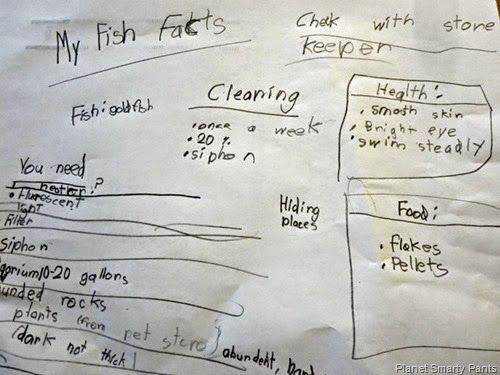 My Fish Facts
Chek with store
keeper
Fish: goldfish
Cleaning
• once a week
• 20 %
• siphon
Health:
• Smoth skin
• Bright eye
• Swim steadly
You need
heater?
• Flurescent
light
Filter
siphon
10-20 gallons
rocks
plants (from pet store)
(dark not thick)
abundent,
Hiding
places
Food:
• flakes
• Pellets
Planet Smarty Pants